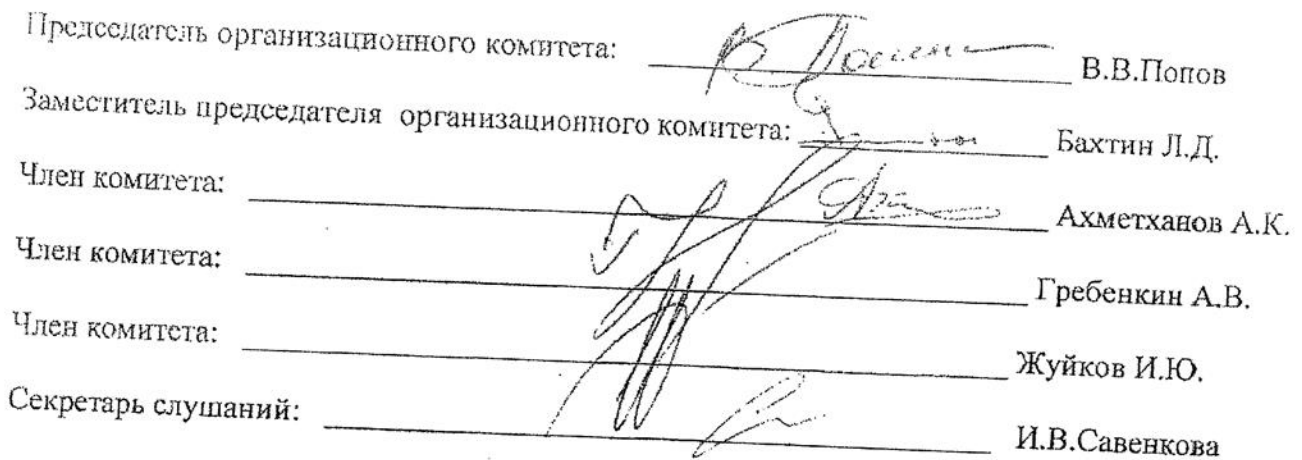 Председатель организационного комитета: В.В.Попов
Заместитель председателя организационного комитета: Бахтин Л.Д.
Член комитета: Ахметханов А.К.
Член комитета: Гребенкин А.В.
Член комитета: Жуйков И.Ю.
Секретарь слушаний: И.В.Савенкова